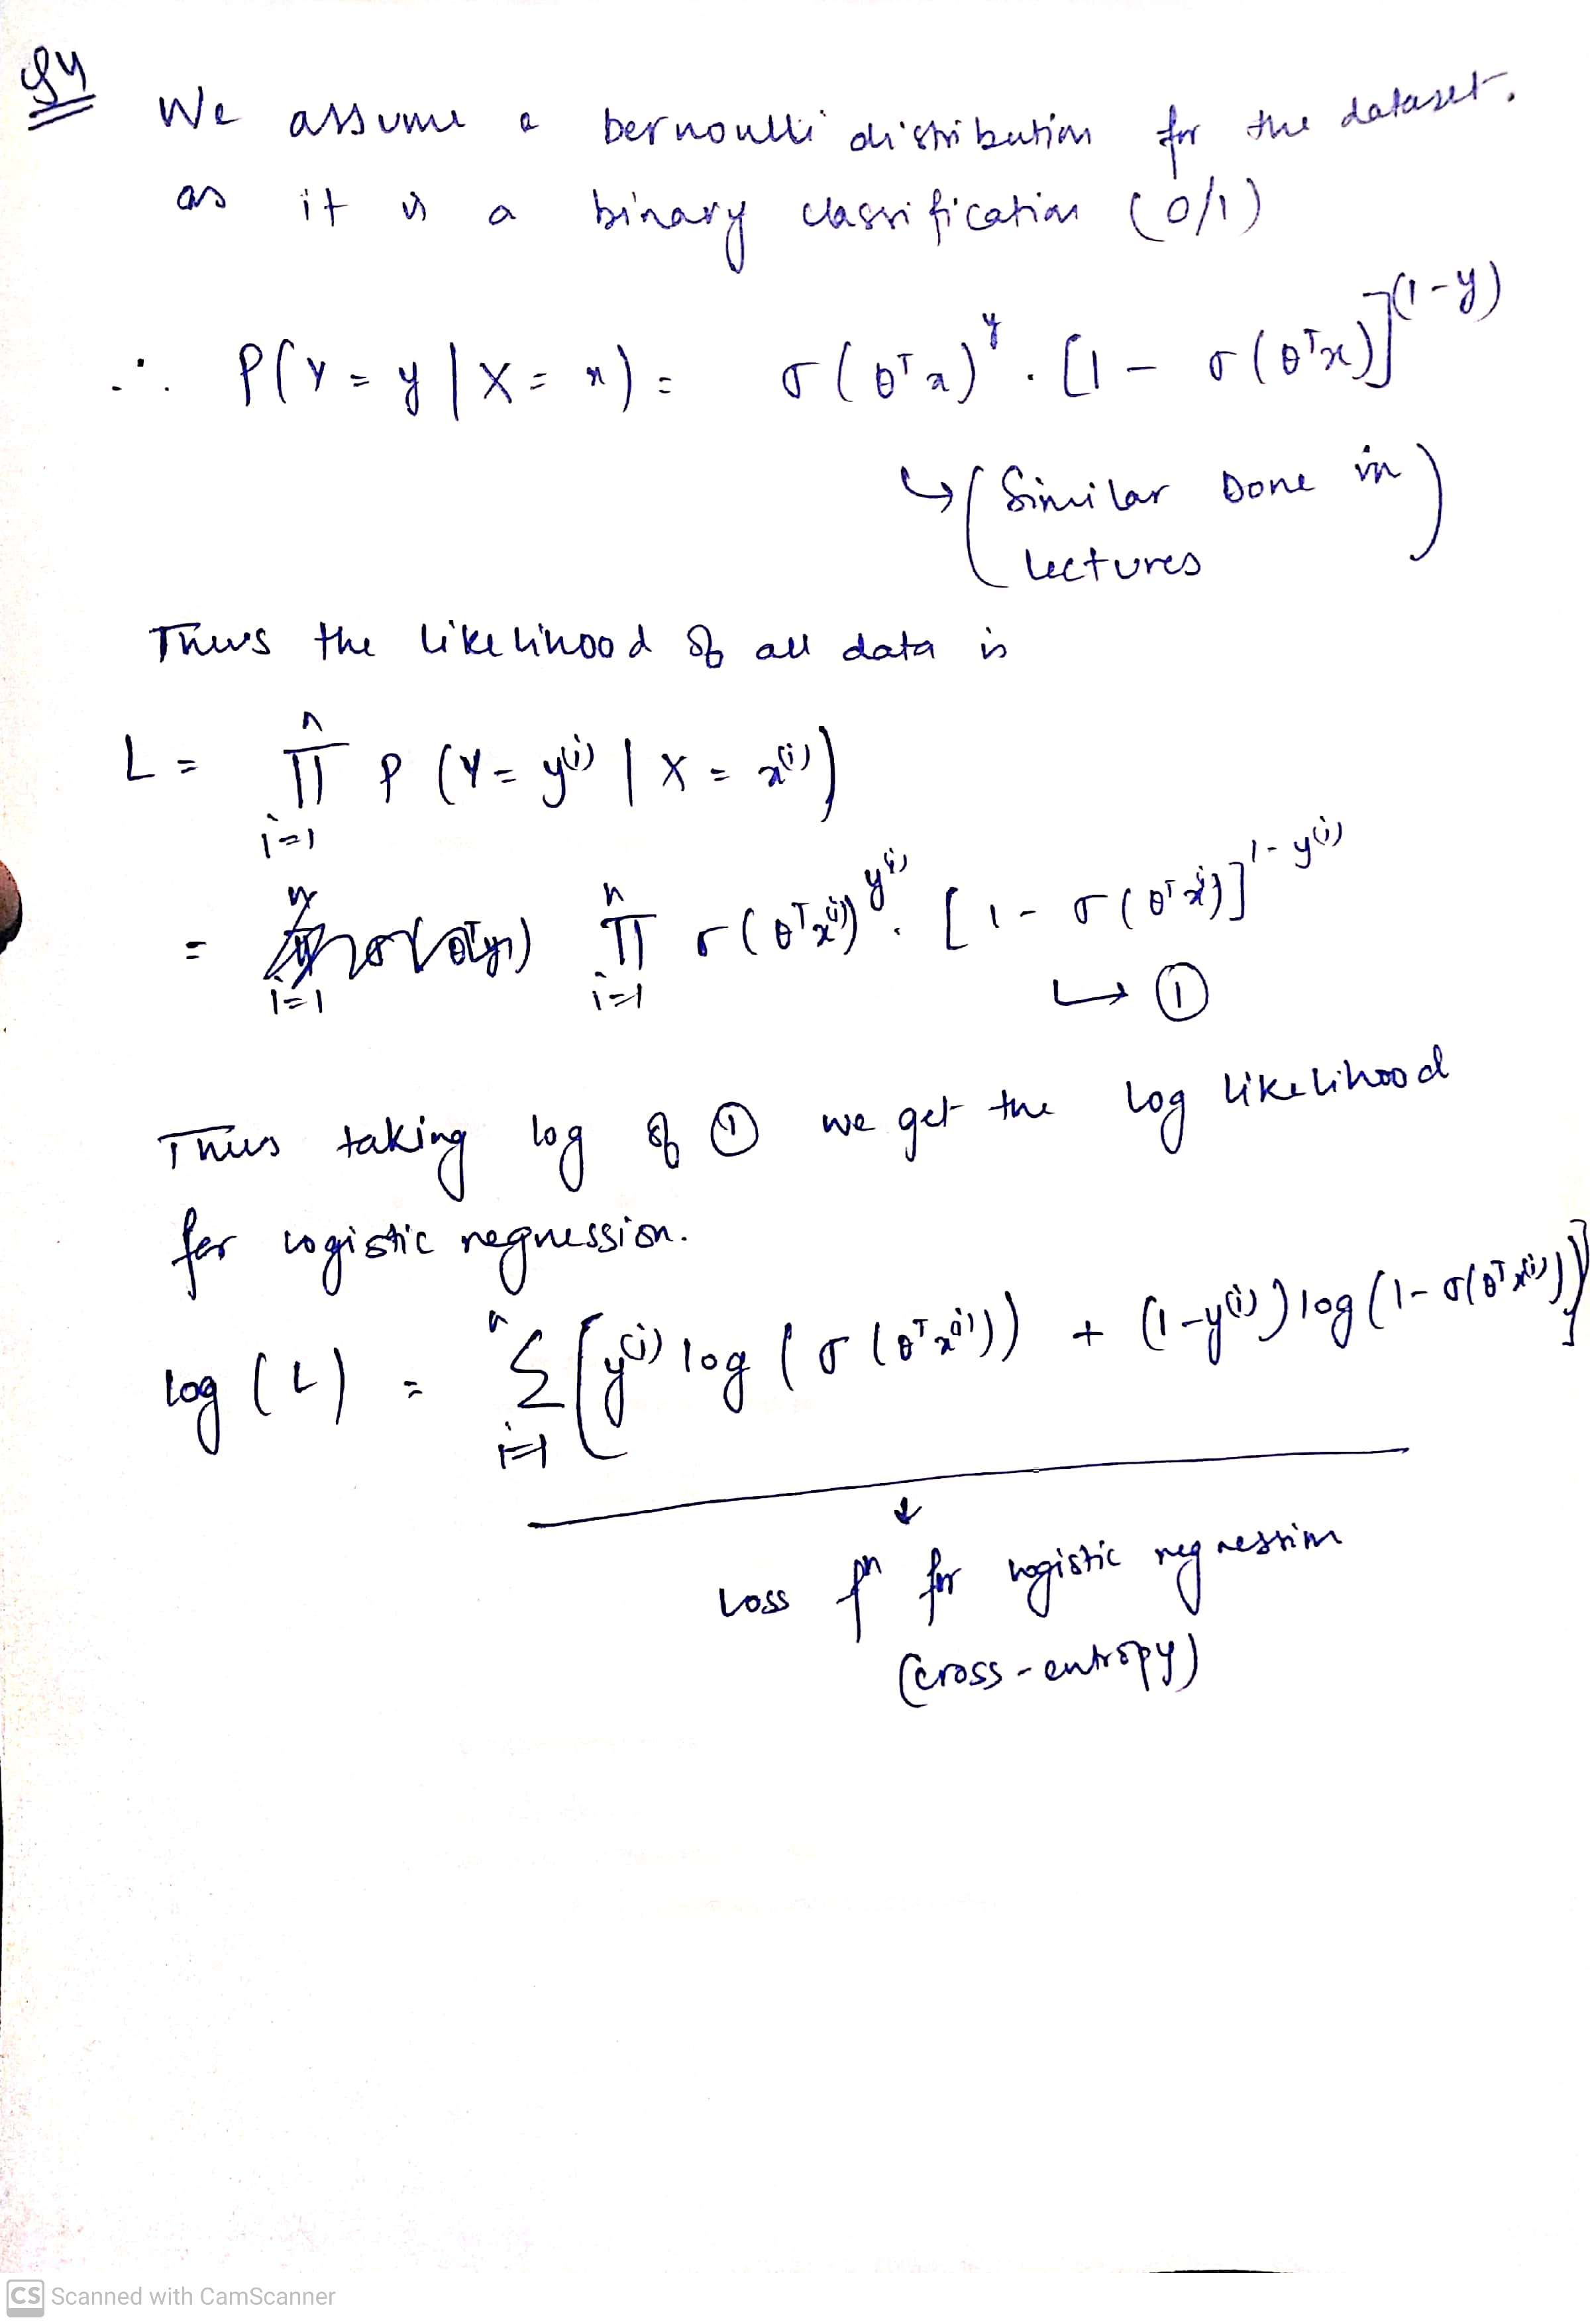 Q4
We assume a bernoulli distribution for the dataset.
as it is a binary classification (0/1)
∴ P(Y = y | X = x) = σ(θᵀx)^y . [1 - σ(θᵀx)]^(1-y)
↳ (Similar Done in
lectures)
Thus the likelihood of all data is
L = ∏_{i=1}^{n} P (Y = y⁽ⁱ⁾ | X = x⁽ⁱ⁾)
= ∏_{i=1}^{n} σ(θᵀx⁽ⁱ⁾)^{y⁽ⁱ⁾} . [1 - σ(θᵀx⁽ⁱ⁾)]^{1-y⁽ⁱ⁾}
↳ ①
Thus taking log of ① we get the log likelihood
for logistic regression.
log (L) = ∑_{i=1}^{n} [y⁽ⁱ⁾ log (σ(θᵀx⁽ⁱ⁾)) + (1-y⁽ⁱ⁾) log (1- σ(θᵀx⁽ⁱ⁾))]
↓
Loss fⁿ for logistic regression
(cross-entropy)
CS Scanned with CamScanner